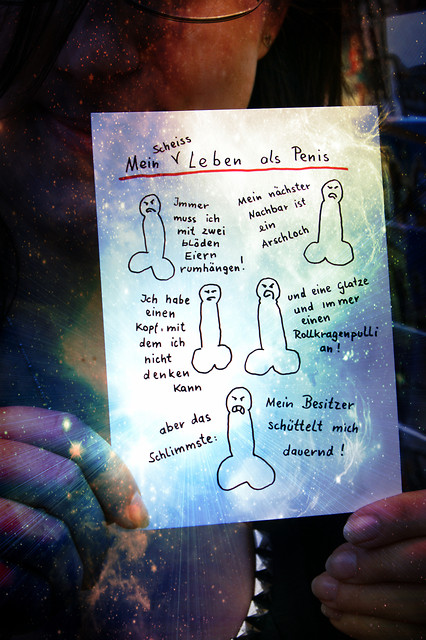 Mein Scheiss Leben als Penis
Immer
muss ich
mit zwei
blöden
Eiern
rumhängen!
Mein nächster
Nachbar ist
ein
Arschloch
Ich habe
einen
Kopf, mit
dem ich
nicht
denken
kann
und eine Glatze
und immer
einen
Rollkragenpulli
an!
aber das
Schlimmste:
Mein Besitzer
schüttelt mich
dauernd!